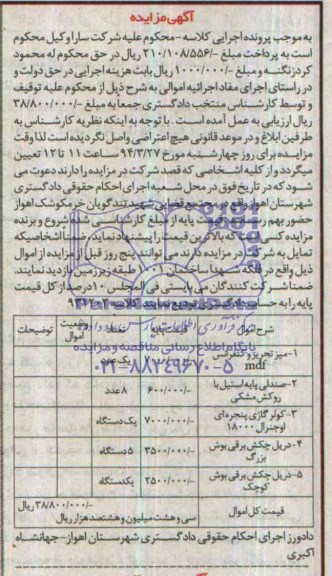 آگهی مزایده
به موجب پرونده اجرایی کلاسه - محکوم علیه شرکت سارا وکیل محکوم
است به پرداخت مبلغ -/۳۱۰/۱۰۸/۵۵۶ ریال در حق محکوم له محمود
کردزنگنه و مبلغ -/۱۰۰۰/۰۰۰ ریال بابت هزینه اجرایی در حق دولت و
در راستای اجرای مفاد اجرائیه اموالی به شرح ذیل از محکوم علیه توقیف
و توسط کارشناس منتخب دادگستری جمعا به مبلغ -/۳۸/۸۰۰/۰۰۰
ریال ارزیابی به عمل آمده است. با توجه به اینکه نظریه کارشناس به
طرفین ابلاغ و در موعد قانونی هیچ اعتراضی واصل نگردیده است لذا وقت
مزایده برای روز چهارشنبه مورخ ۹۴/۳/۲۷ ساعت ۱۱ تا ۱۲ تعیین
میگردد و از کلیه اشخاصی که قصد شرکت در مزایده را دارند دعوت می
شود که در تاریخ فوق در محل شعبه اجرای احکام حقوقی دادگستری
شهرستان اهواز واقع در مجتمع قضایی شهید تندگویان خرمکوشک اهواز
حضور بهم رسانند قیمت پایه از مبلغ کارشناسی شده شروع و برنده
مزایده کسی است که بالاترین قیمت را پیشنهاد نماید، ضمنا اشخاصیکه
تمایل به شرکت در مزایده دارند می توانند پنج روز قبل از مزایده از اموال
ذیل واقع در فلکه شهدا ساختمان طبقه زیرزمین بازدید نمایند.
ضمنا شرکت کنندگان می بایستی فی المجلس ۱۰ درصد از کل قیمت
پایه را به حساب دادگستری تودیع نمایند. کلاسه
شرح اموال قیمت پایه تعداد وضعیت اموال توضیحات
۱-میز تحریر و کنفرانس mdf یک عدد
۲-صندلی پایه استیل با روکش مشکی -/۶۰۰/۰۰۰ ۸عدد
۳-کولر گازی پنجره ای اوجنرال ۱۸۰۰۰ -/۷۰۰۰/۰۰۰ یک دستگاه
۴-دریل چکش برقی بوش بزرگ -/۳۵۰۰/۰۰۰ ۵ دستگاه
۵-دریل چکش برقی بوش کوچک -/۲۵۰۰/۰۰۰ یکدستگاه
قیمت کل اموال -/۳۸/۸۰۰/۰۰۰ ریال
سی و هشت میلیون و هشتصد هزار ریال
دادورز اجرای احکام حقوقی دادگستری شهرستان اهواز-جهانشاه
اکبری
پایگاه اطلاع رسانی مناقصه و مزایده
۰۲۱-۸۸۳۴۹۶۷۰-۵